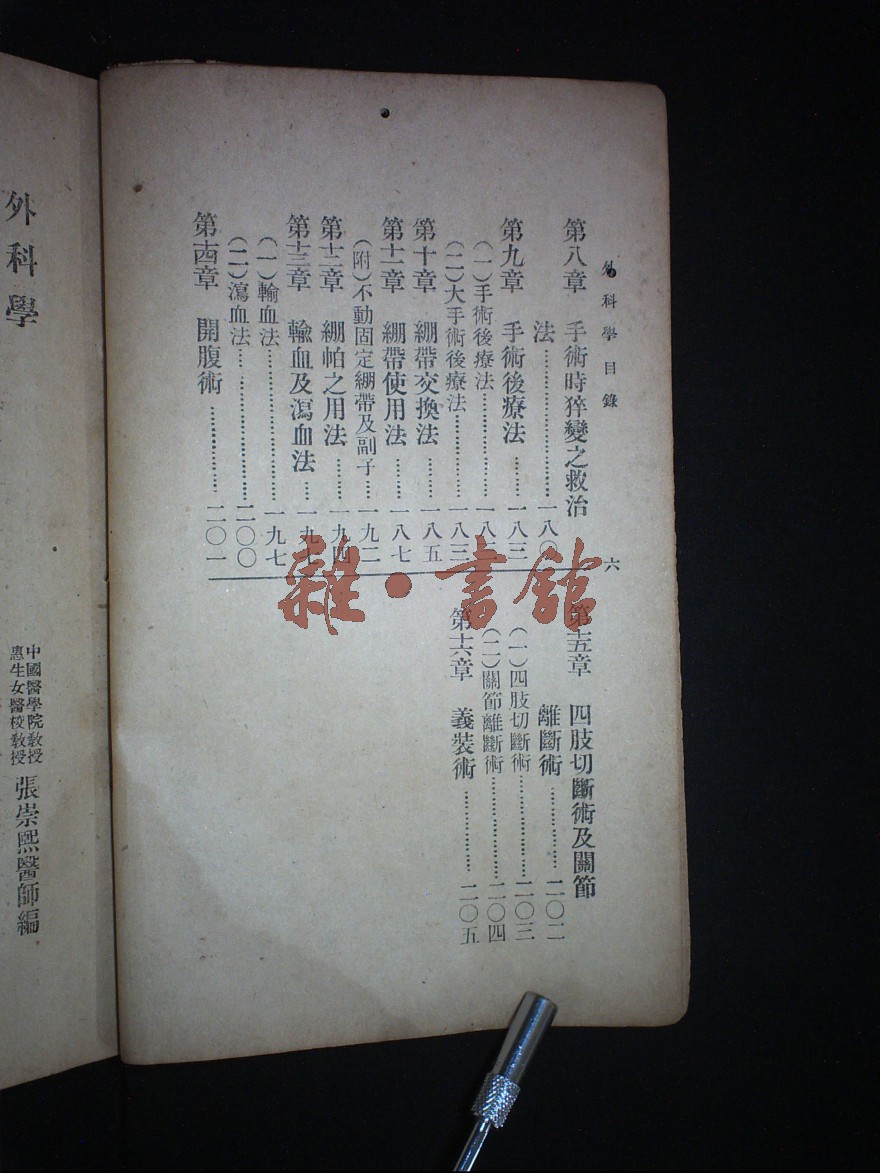 外科學目錄
六
第八章　手術時猝變之救治
法…………………一八〇
第九章　手術後療法………一八三
（一）手術後療法……………一八
（二）大手術後療法…………一八三
第十章　綳帶交換法………一八五
第十一章　綳帶使用法………一八七
（附）不動固定綳帶及副子……一九二
第十二章　綳帕之用法………一九四
第十三章　輸血及瀉血法……一九七
（一）輸血法…………………一九七
（二）瀉血法…………………二〇〇
第十四章　開腹術……………二〇一
第十五章　四肢切斷術及關節
離斷術…………二〇二
（一）四肢切斷術…………二〇三
（二）關節離斷術…………二〇四
第十六章　義裝術…………二〇五
外科學
中國醫學院教授
惠生女醫校教授
張崇熙醫師編
雜·書館